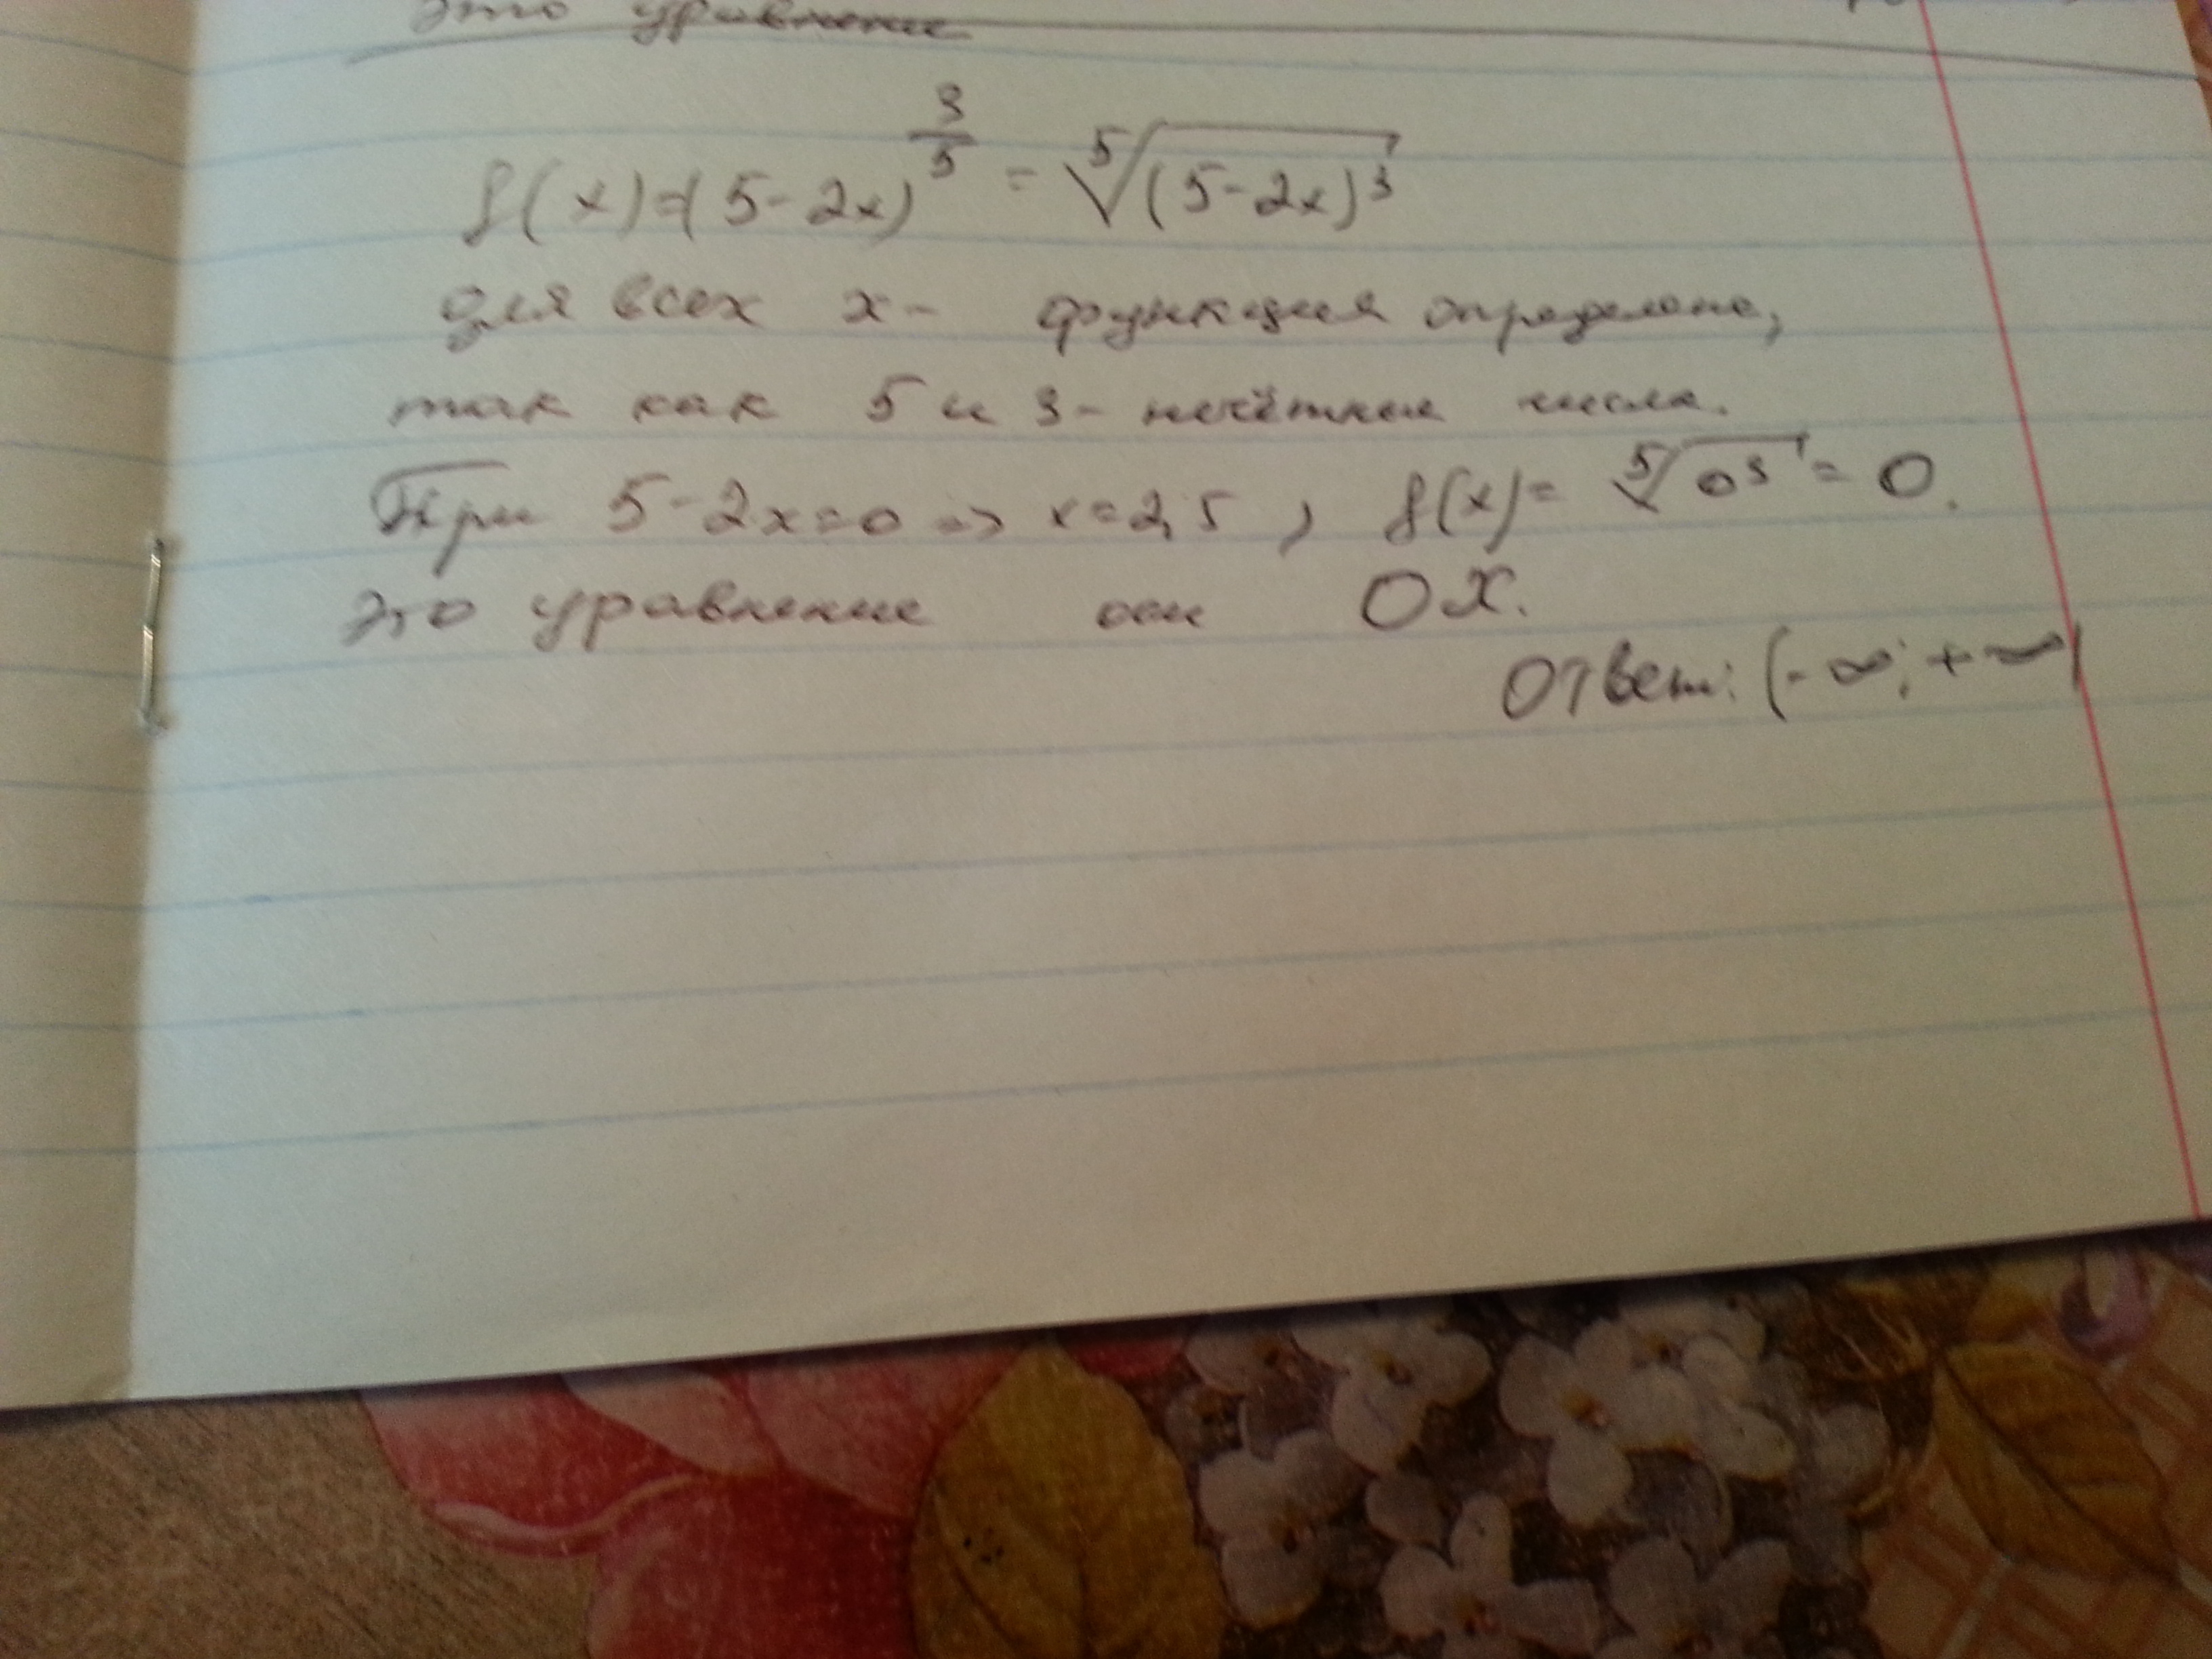 это уравнение
f(x)=(5-2x)^{\frac{3}{5}} = \sqrt[5]{(5-2x)^3}
для всех x- функция определена,
так как 5 и 3- нечётные числа.
При 5-2x=0 => x=2,5 , f(x)= \sqrt[5]{0^3} = 0.
Это уравнение оси OX.
Ответ: (-∞; +∞)